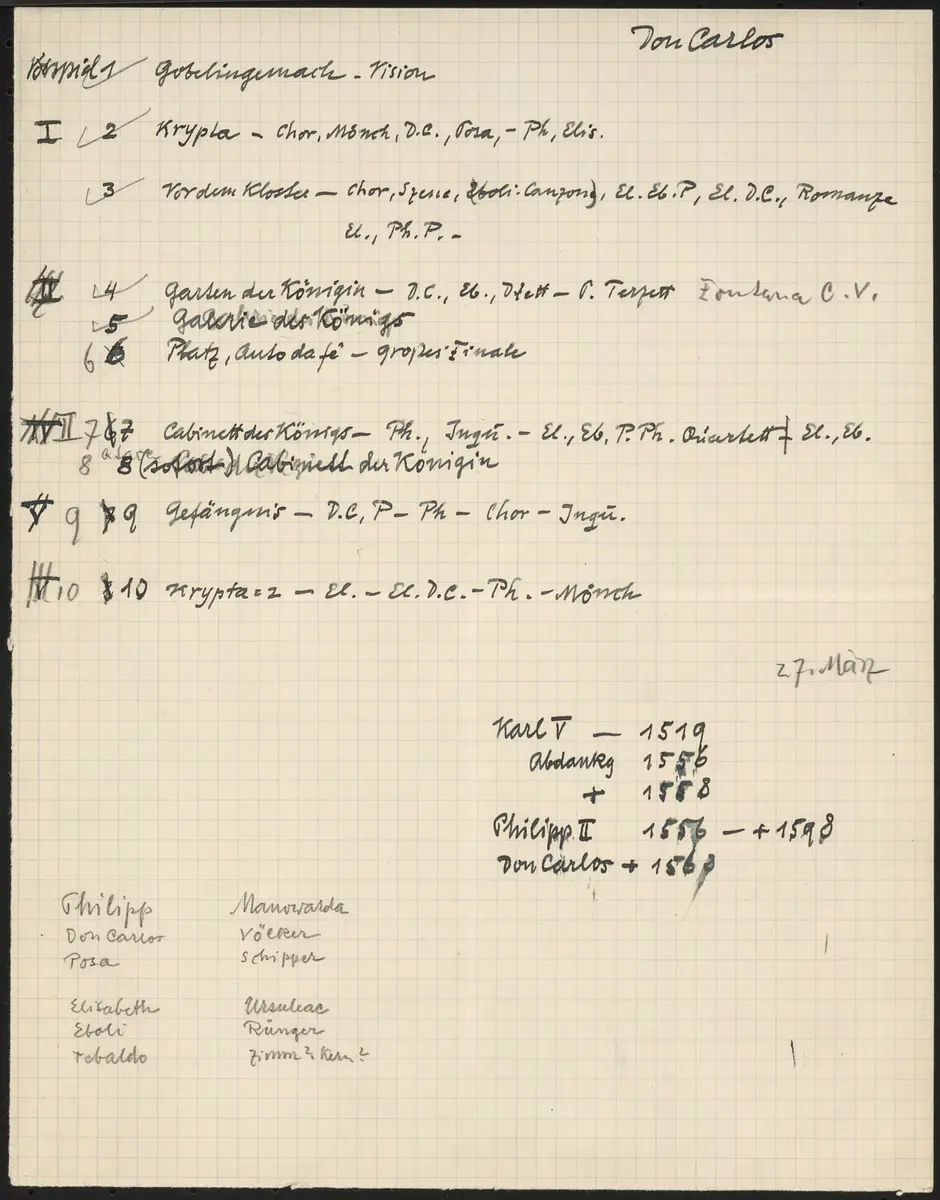 Don Carlos
Vorspiel 1 Gobelingemach - Vision
I 2 Krypta - Chor, Mönch, D.C., Posa, - Ph, Elis.
3 Vor dem Kloster - Chor, Szene, (Eboli-Canzone), El. Eb. P, El. D.C., Romanze
El., Ph. P. -
4 Garten der Königin - D.C., Eb., Duett - P. Terzett Fontana C.V.
5 Galerie des Königs
6 6 Platz, Autodafé - großes Finale
II 7 7 Cabinett des Königs - Ph., Inqu. - El., Eb, P. Ph. Quartett - El., Eb.
8 8 (sofort) Cabinett der Königin
V 9 9 Gefängnis - D.C, P - Ph - Chor - Inqu.
10 10 Krypta = 2 - El. - El. D.C. - Ph. - Mönch
27. März
Karl V - 1519
Abdankg 1556
+ 1558
Philipp II 1556 - + 1598
Don Carlos + 1568
Philipp Manowarda
Don Carlos Völker
Posa Schipper
Elisabeth Ursuleac
Eboli Rünger
Tebaldo Zimm? Kern?